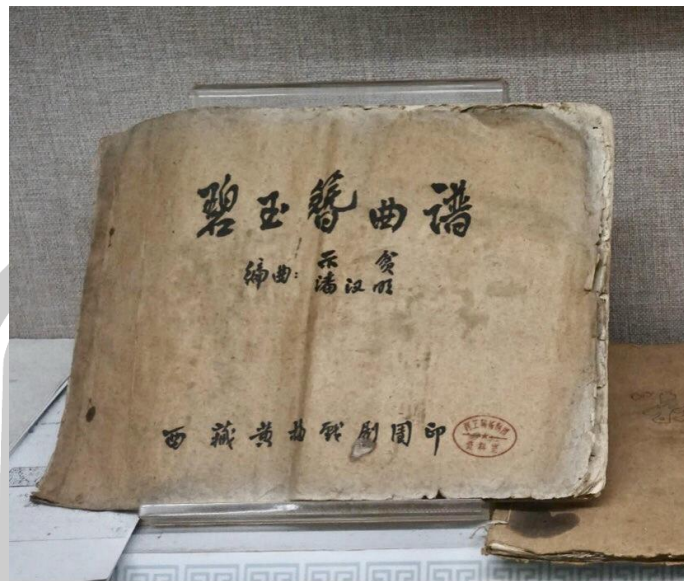 碧玉簪曲谱
编曲: 示贪
潘汉明
西藏黄梅戏剧团印
资料室